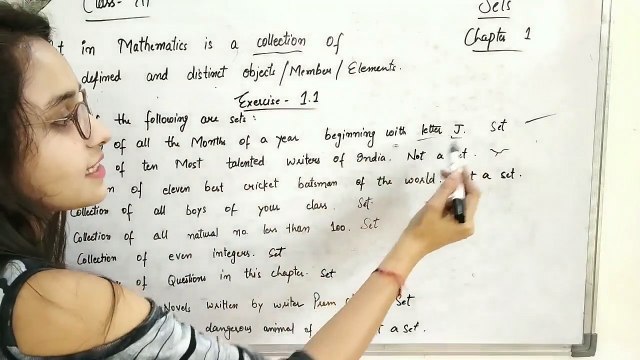 Class- XI
Sets
Chapter 1
in Mathematics is a collection of
defined and distinct objects/Member/Elements.
Exercise - 1.1
the following are sets:
of all the Months of a year beginning with letter J. Set
of ten Most talented writers of India. Not a set.
of eleven best cricket batsman of the world. a set.
Collection of all boys of your class. Set
Collection of all natural no. less than 100. Set
Collection of even integers. Set
of Questions in this chapter. Set
Novels written by writer Prem Set
dangerous animal of a set.